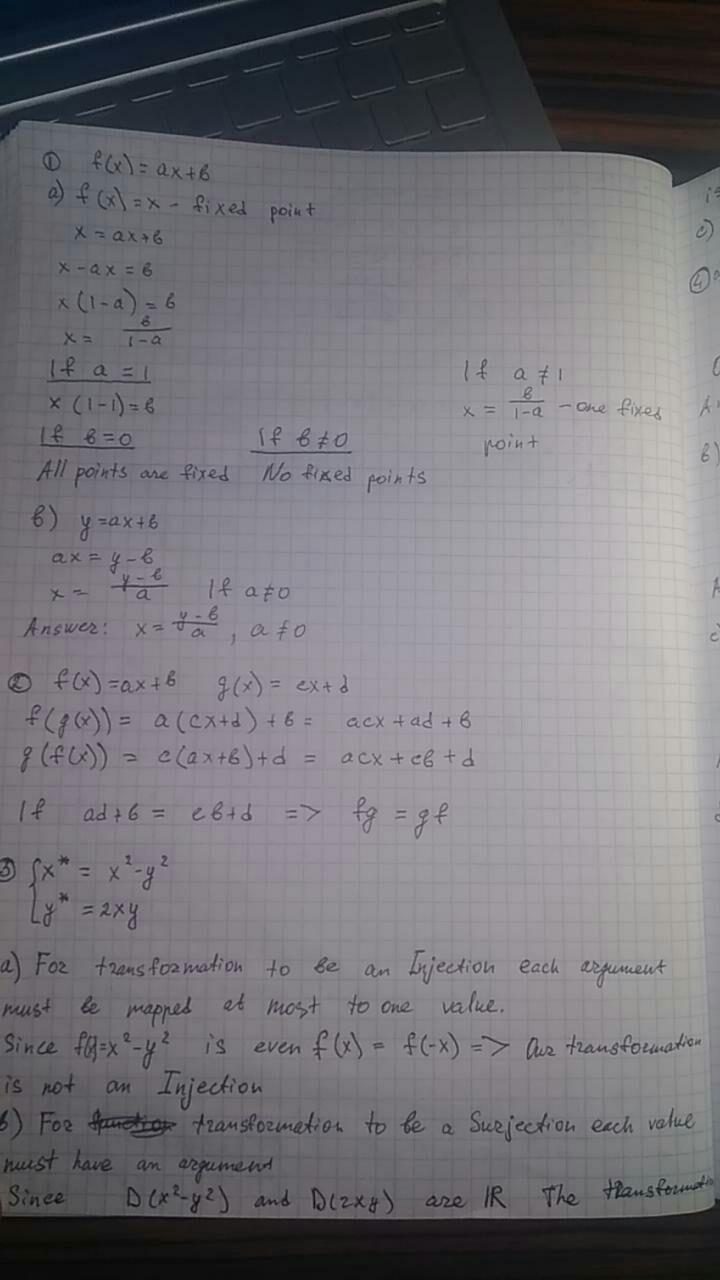 ① f(x) = ax+b
a) f(x) = x - fixed point
x = ax+b
x - ax = b
x(1-a) = b
x = b/(1-a)
If a = 1
x(1-1) = b
If b=0
All points are fixed
If b≠0
No fixed points
If a ≠ 1
x = b/(1-a) - one fixed
point
b) y = ax+b
ax = y - b
x = (y-b)/a If a≠0
Answer: x = (y-b)/a , a ≠ 0
② f(x) = ax+b g(x) = cx+d
f(g(x)) = a(cx+d)+b = acx+ad+b
g(f(x)) = c(ax+b)+d = acx+cb+d
If ad+b = cb+d => fg = gf
③ { x* = x² - y²
y* = 2xy
a) For transformation to be an Injection each argument
must be mapped at most to one value.
Since f(x)=x²-y² is even f(x) = f(-x) => Our transformation
is not an Injection
b) For transformation to be a Surjection each value
must have an argument
Since D(x²-y²) and D(2xy) are IR The
c)
④
b)